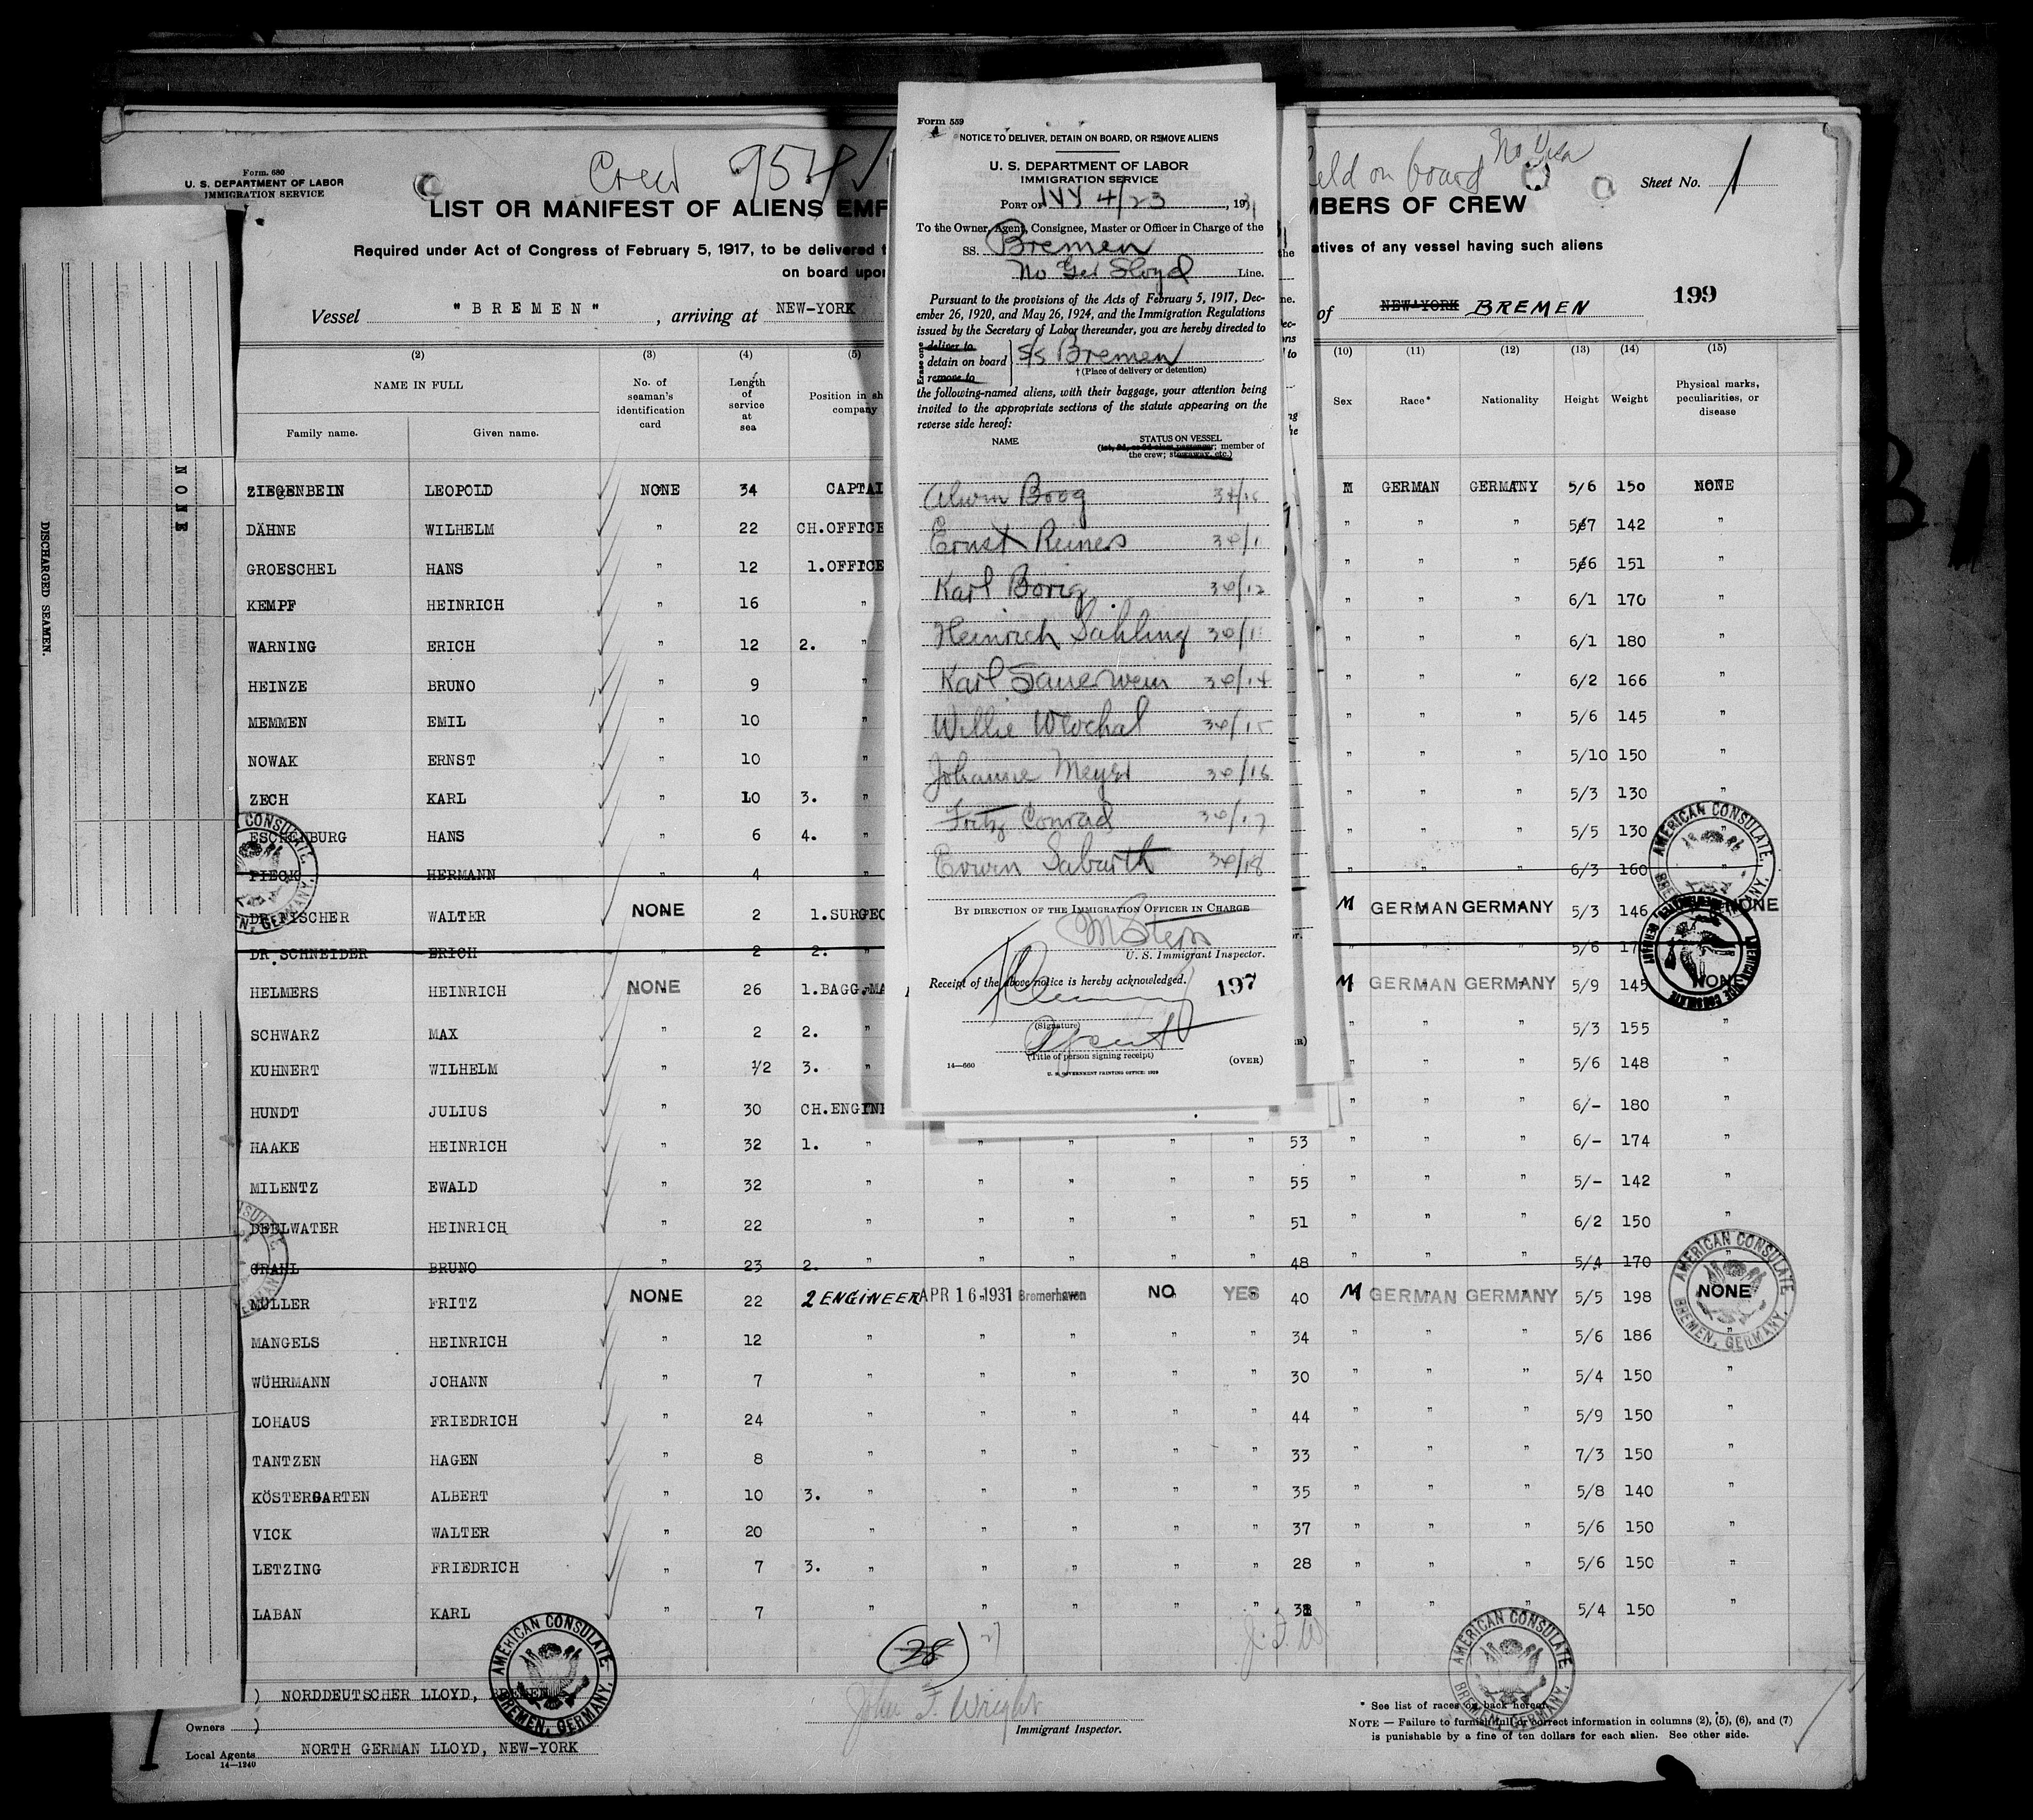 Form 680
U. S. DEPARTMENT OF LABOR
IMMIGRATION SERVICE
Crew 954
held on board
No Visa
Sheet No. 1
LIST OR MANIFEST OF ALIENS EMP
MBERS OF CREW
Required under Act of Congress of February 5, 1917, to be delivered t
atives of any vessel having such aliens
on board upon
Vessel "BREMEN" , arriving at NEW-YORK
of NEW-YORK BREMEN
199
(2) (3) (4) (5) (10) (11) (12) (13) (14) (15)
NAME IN FULL
Family name. Given name.
No. of seaman's identification card
Length of service at sea
Position in sh company
Sex Race* Nationality Height Weight
Physical marks, peculiarities, or disease
ZIEGENBEIN LEOPOLD NONE 34 CAPTAI M GERMAN GERMANY 5/6 150 NONE
DÄHNE WILHELM " 22 CH.OFFICE " " " 5/7 142 "
GROESCHEL HANS " 12 1.OFFICE " " " 5/6 151 "
KEMPF HEINRICH " 16 " " " " 6/1 170 "
WARNING ERICH " 12 2. " " " " 6/1 180 "
HEINZE BRUNO " 9 " " " " 6/2 166 "
MEMMEN EMIL " 10 " " " " 5/6 145 "
NOWAK ERNST " 10 " " " " 5/10 150 "
ZECH KARL " 10 3. " " " " 5/3 130 "
ESCHENBURG HANS " 6 4. " " " " 5/5 130 "
PIECK HERMANN " 4 " " " " 6/3 160 "
DR.FISCHER WALTER NONE 2 1.SURGEO M GERMAN GERMANY 5/3 146 NONE
DR.SCHNEIDER ERICH " 2 2. " " " " 5/6
HELMERS HEINRICH NONE 26 1.BAGG.MA M GERMAN GERMANY 5/9 145 NONE
SCHWARZ MAX " 2 2. " " " " 5/3 155 "
KUHNERT WILHELM " 1/2 3. " " " " 5/6 148 "
HUNDT JULIUS " 30 CH.ENGINE " " " 6/- 180 "
HAAKE HEINRICH " 32 1. " " " " " 53 " " " 6/- 174 "
MILENTZ EWALD " 32 " " " " " 55 " " " 5/- 142 "
DEELWATER HEINRICH " 22 " " " " " 51 " " " 6/2 150 "
GRAHL BRUNO " 23 2. " " " " " 48 " " " 5/4 170 "
MÜLLER FRITZ NONE 22 2 ENGINEER APR 16 1931 Bremerhaven NO YES 40 M GERMAN GERMANY 5/5 198 NONE
MANGELS HEINRICH " 12 " " " " " 34 " " " 5/6 186 "
WÜHRMANN JOHANN " 7 " " " " " 30 " " " 5/4 150 "
LOHAUS FRIEDRICH " 24 " " " " " 44 " " " 5/9 150 "
TANTZEN HAGEN " 8 " " " " " 33 " " " 7/3 150 "
KÖSTERGARTEN ALBERT " 10 3. " " " " " 35 " " " 5/8 140 "
VICK WALTER " 20 " " " " " 37 " " " 5/6 150 "
LETZING FRIEDRICH " 7 3. " " " " " 28 " " " 5/6 150 "
LABAN KARL " 7 " " " " " " " " 5/4 150 "
(28) 27
J. F. W
NORDDEUTSCHER LLOYD, BREMEN
Owners
Local Agents NORTH GERMAN LLOYD, NEW-YORK
14—1240
John F. Wright
Immigrant Inspector.
* See list of races on back hereof.
NOTE — Failure to furnish full or correct information in columns (2), (5), (6), and (7)
is punishable by a fine of ten dollars for each alien. See other side.
AMERICAN CONSULATE BREMEN, GERMANY.
AMERICAN CONSULATE, BREMEN, GERMANY.
AMERICAN CONSULATE BREMEN, GERMANY.
AMERICAN CONSULATE BREMEN, GERMANY.
NONE
DISCHARGED SEAMEN.
Form 559
NOTICE TO DELIVER, DETAIN ON BOARD, OR REMOVE ALIENS
U. S. DEPARTMENT OF LABOR
IMMIGRATION SERVICE
PORT OF NY 4/23, 1931
To the Owner, Agent, Consignee, Master or Officer in Charge of the
SS. Bremen
No Ger Lloyd Line.
Pursuant to the provisions of the Acts of February 5, 1917, Dec-
ember 26, 1920, and May 26, 1924, and the Immigration Regulations
issued by the Secretary of Labor thereunder, you are hereby directed to
Erase one
deliver to
detain on board
remove to
S/S Bremen
† (Place of delivery or detention)
the following-named aliens, with their baggage, your attention being
invited to the appropriate sections of the statute appearing on the
reverse side hereof:
NAME STATUS ON VESSEL
(1st, 2d, or 3d class passenger; member of
the crew; stowaway, etc.)
Alwin Boog
Ernst Reiners
Karl Borig 30/12
Heinrich Sahling
Karl Sauerwein 30/14
Willie Wlochal 30/15
Johanne Meyer 30/16
Fritz Conrad 30/17
Erwin Sabarth 30/18
BY DIRECTION OF THE IMMIGRATION OFFICER IN CHARGE
U. S. Immigrant Inspector.
Receipt of the above notice is hereby acknowledged.
197
(Signature)
Agent
(Title of person signing receipt)
14—660
(OVER)
U. S. GOVERNMENT PRINTING OFFICE: 1929